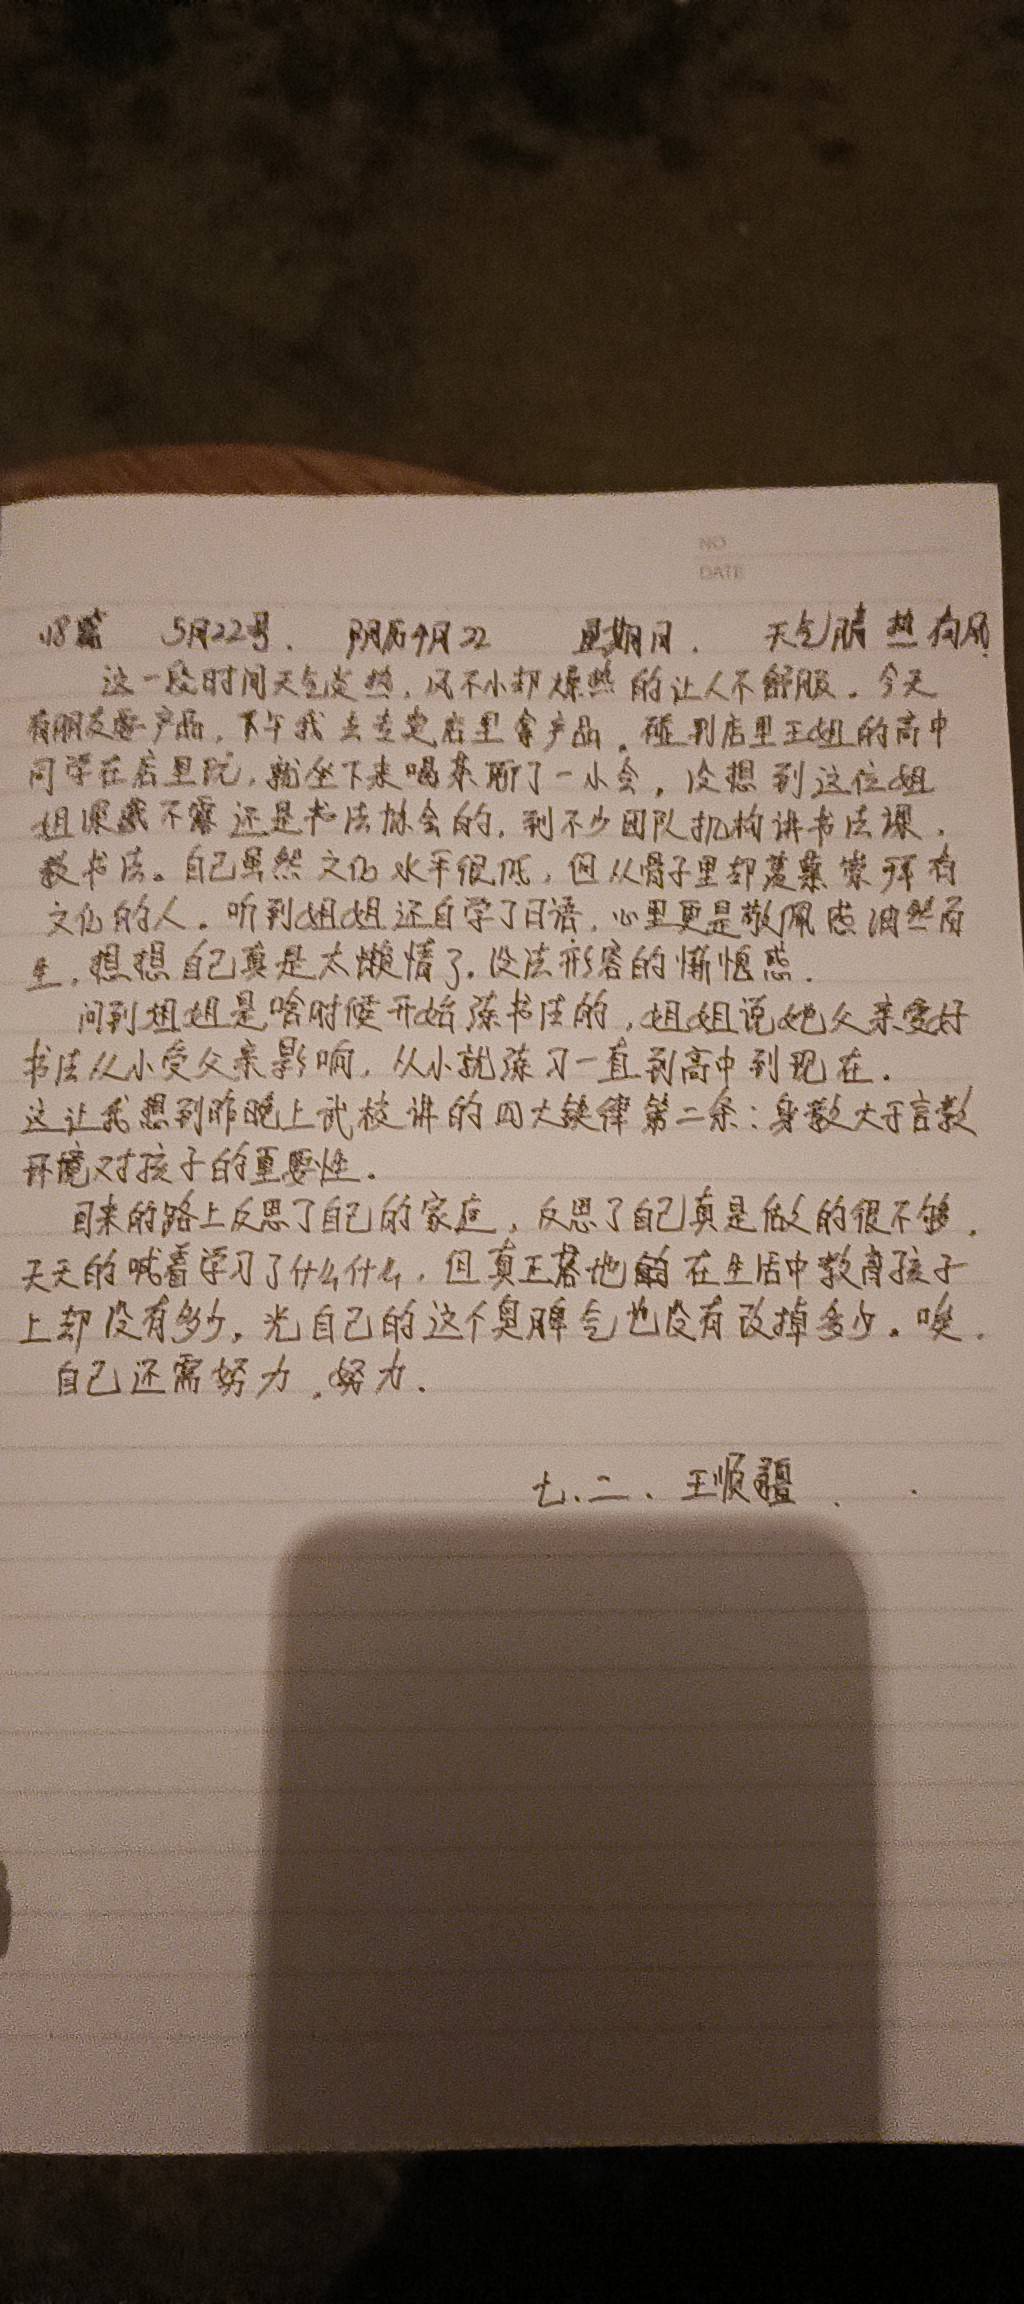 NO
DATE
5月22号. 阴历4月22 星期日. 天气晴 热 有风.
这一段时间天气炎热,风不小却燥热的让人不舒服.今天
有朋友要产品,下午我去专卖店里拿产品.碰到店里王姐的高中
同学在店里玩,就坐下来喝茶聊了一小会.没想到这位姐
姐深藏不露还是书法协会的,到不少团队机构讲书法课.
教书法。自己虽然文化水平很低,但从骨子里却羡慕崇拜有
文化的人.听到姐姐还自学了日语,心里更是敬佩感油然而
生,想想自己真是太懒惰了.没法形容的惭愧感.
问到姐姐是啥时候开始练书法的,姐姐说她父亲爱好
书法从小受父亲影响,从小就练习一直到高中到现在.
这让我想到昨晚上武校讲的四大铁律第二条:身教大于言教
环境对孩子的重要性.
回来的路上反思了自己的家庭,反思了自己真是做的很不够.
天天的喊着学习了什么什么,但真正落地的在生活中教育孩子
上却没有多少.光自己的这个臭脾气也没有改掉多少.唉.
自己还需努力.努力.
七.二. 王顺疆